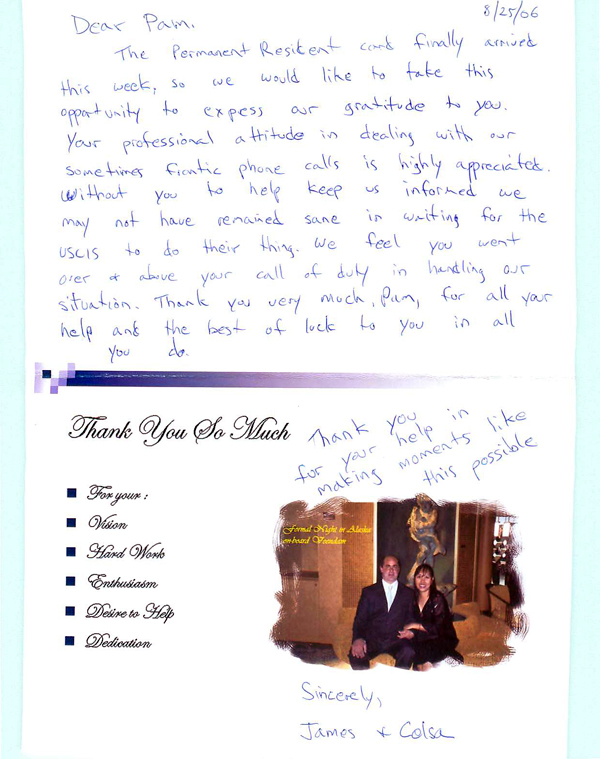 8/25/06
Dear Pam,
The Permanent Resident card finally arrived
this week, so we would like to take this
opportunity to expess our gratitude to you.
Your professional attitude in dealing with our
sometimes frantic phone calls is highly appreciated.
Without you to help keep us informed we
may not have remained sane in waiting for the
USCIS to do their thing. We feel you went
over & above your call of duty in handling our
situation. Thank you very much, Pam, for all your
help and the best of luck to you in all
you do.
Thank You So Much
Thank you
for your help in
making moments like
this possible
For your :
Vision
Hard Work
Enthusiasm
Desire to Help
Dedication
Formal Night in Alaska
on-board Veendam
Sincerely,
James & Colsa